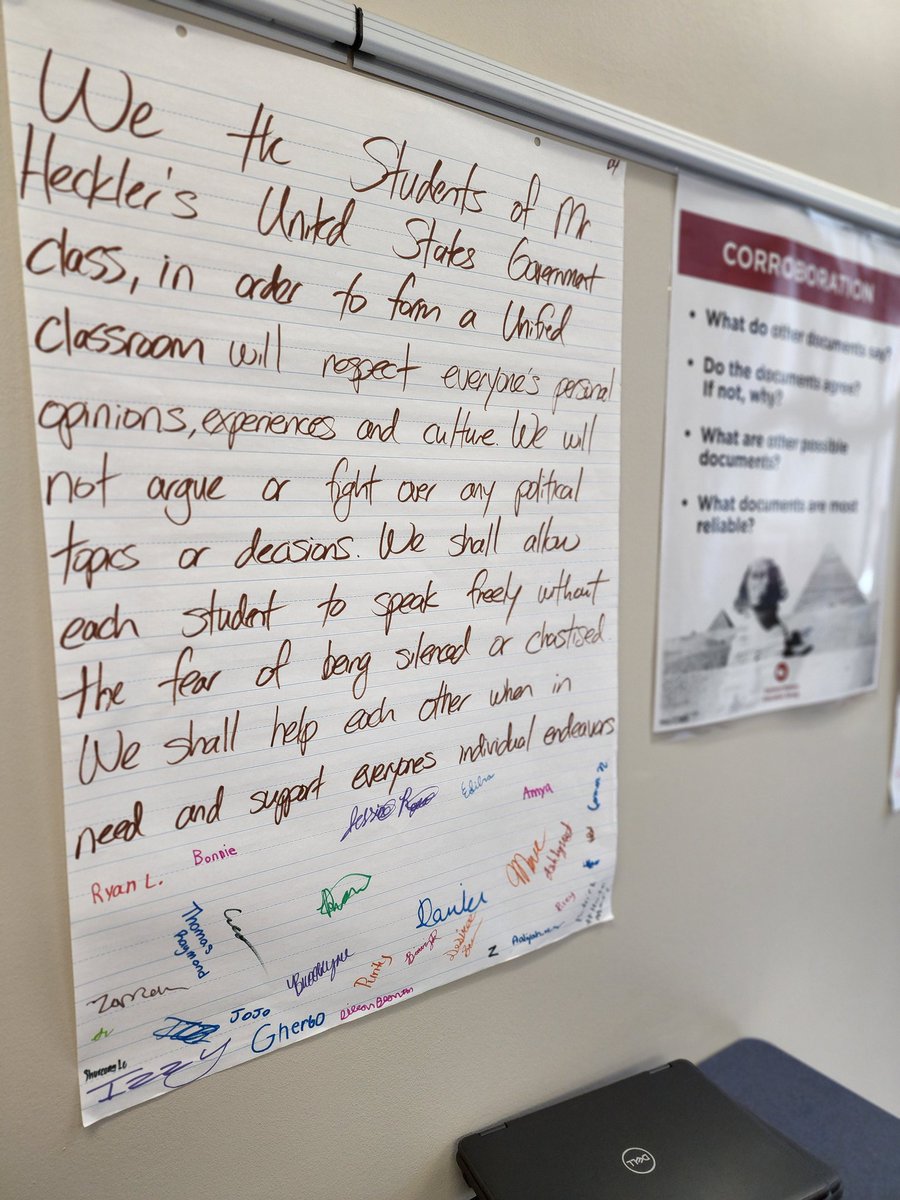 We the Students of Mr.
Heckler's United States Government
class, in order to form a Unified
classroom will respect everyone's personal
opinions, experiences and culture. We will
not argue or fight over any political
topics or decisions. We shall allow
each student to speak freely without
the fear of being silenced or chastised
We shall help each other when in
need and support everyones individual endeavors
Ryan L.
Bonnie
Amya
Thomas
Raymond
Brooklynne
Desiree
Z
Aaliyah
JoJo
Gherbo
Izzy
CORROBORATION
• What do other documents say?
• Do the documents agree?
If not, why?
• What are other possible
documents?
• What documents are most
reliable?
DELL